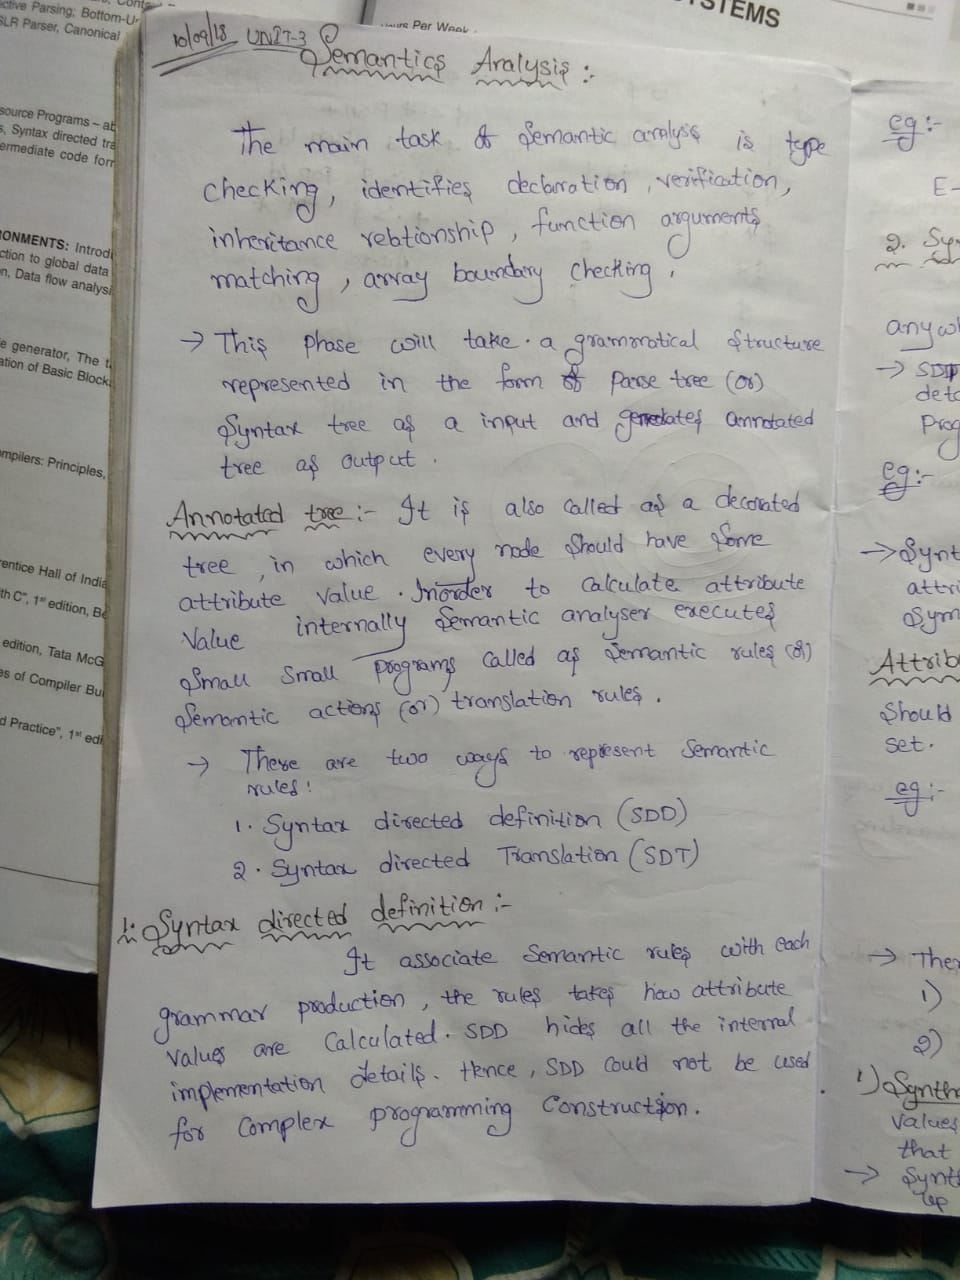 ctive Parsing; Bottom-Ur
SLR Parser, Canonical
source Programs – ab
s, Syntax directed tra
ermediate code forr
ONMENTS: Introdu
ction to global data
n, Data flow analysi
e generator, The t
ation of Basic Block
ompilers: Principles,
rentice Hall of India
ith C", 1st edition, Be
edition, Tata McG
es of Compiler Bu
d Practice", 1st edi
STEMS
Per Week
10/09/18 UNIT-3
Semantics Analysis :-
The main task of semantic analysis is type
checking, identifies declaration, verification,
inheritance relationship, function arguments
matching, array boundary checking.
→ This phase will take a grammatical structure
represented in the form of parse tree (or)
Syntax tree as a input and generates annotated
tree as output.
Annotated tree :- It is also called as a decorated
tree, in which every node should have some
attribute value. Inorder to calculate attribute
value internally semantic analyser executes
small small programs called as semantic rules (or)
Semantic actions (or) translation rules.
→ There are two ways to represent semantic
rules:
1. Syntax directed definition (SDD)
2. Syntax directed Translation (SDT)
1. Syntax directed definition :-
It associate semantic rules with each
grammar production, the rules takes how attribute
values are calculated. SDD hides all the internal
implementation details. Hence, SDD could not be used
for complex programming construction.
eg :-
E-
2. Sy
anywh
→ SDT
deta
prog
eg :-
→ Synt
attri
Sym
Attrib
should
set.
eg :-
→ Ther
1)
2)
1) Synthe
values
that
→ Synt